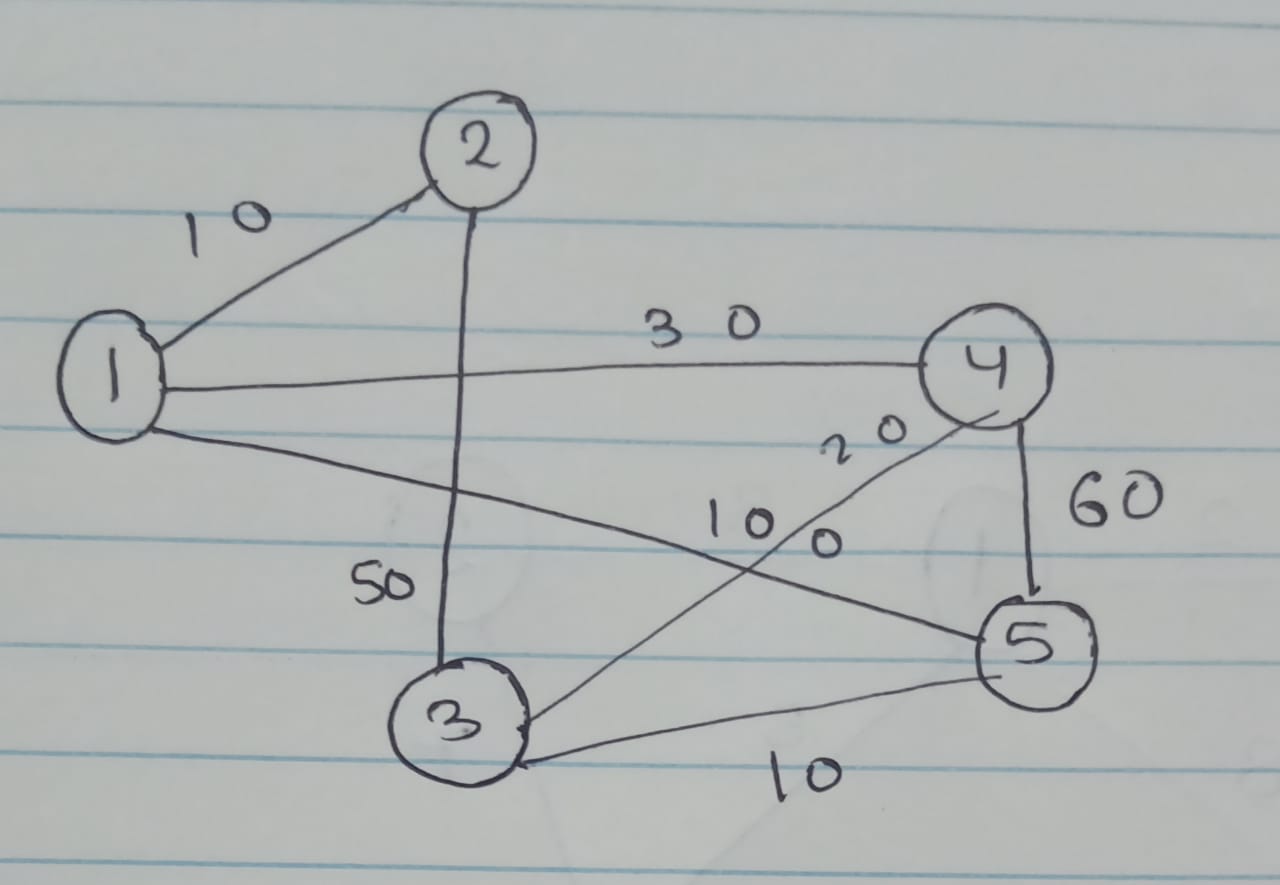 2
10
1
30
4
20
100
60
50
5
3
10